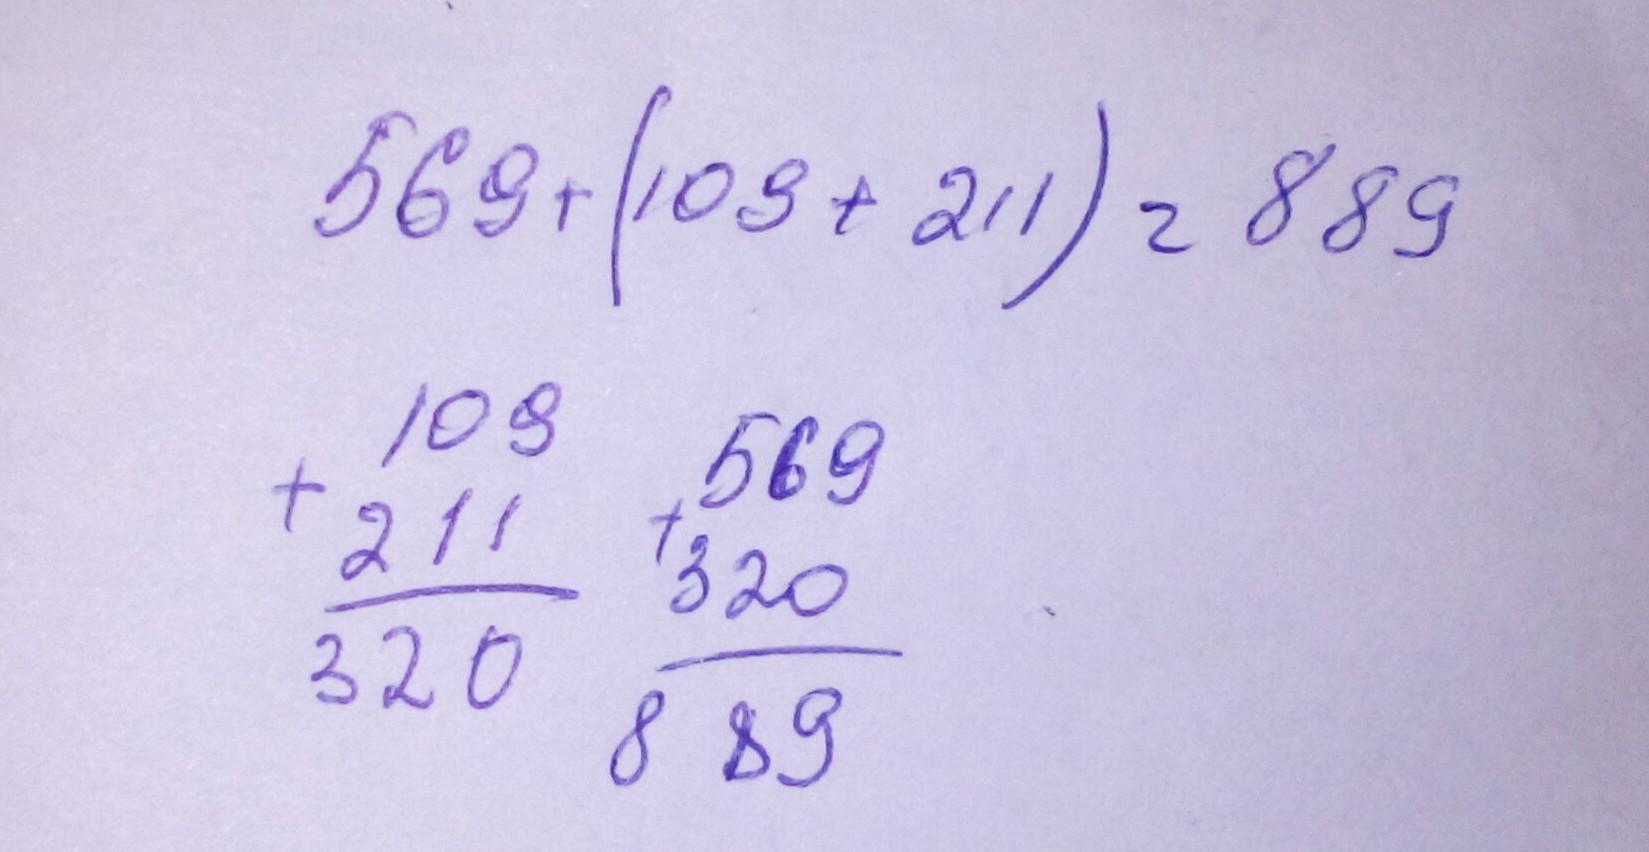 569+(109+211)=889
109
+
211
320
569
+
320
889